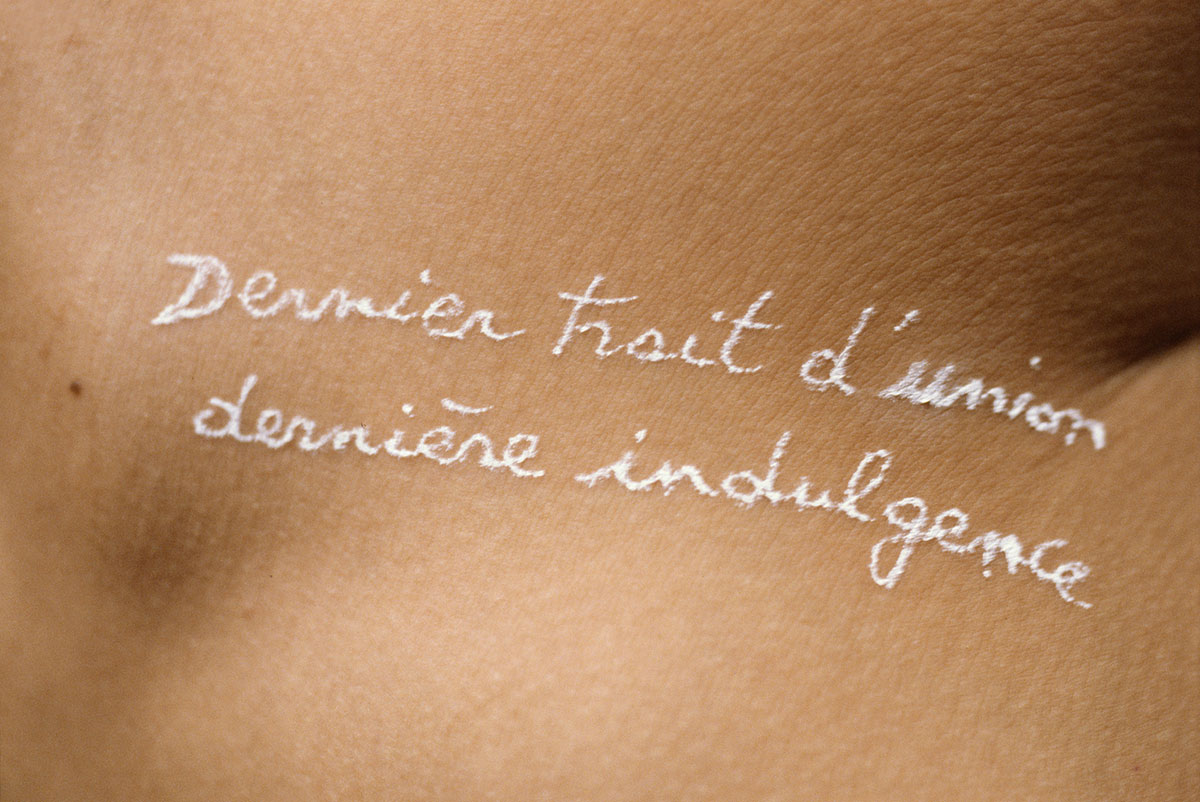 Dernier trait d'union
dernière indulgence